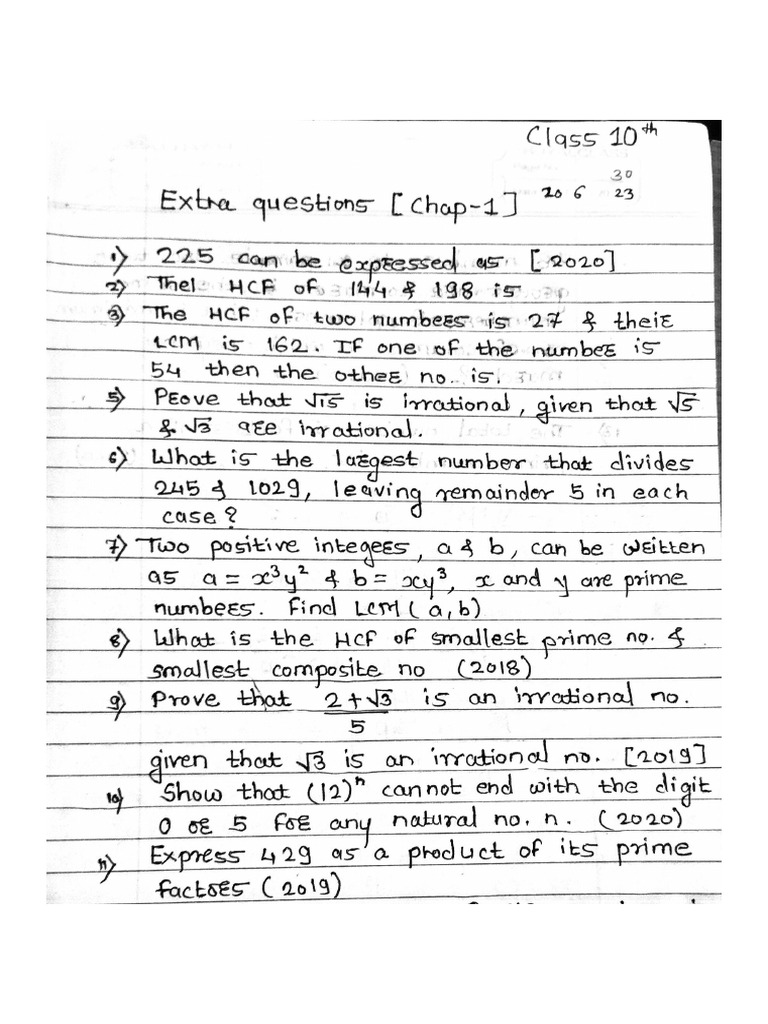 Class 10th
30
Extra questions [Chap-1] 20 6 23
1) 225 can be expressed as [2020]
2) The1 HCF of 144 & 198 is
3) The HCF of two numbers is 27 & their
LCM is 162. If one of the number is
54 then the other no. is.
5) Prove that √15 is irrational, given that √5
& √3 are irrational.
6) What is the largest number that divides
245 & 1029, leaving remainder 5 in each
case?
7) Two positive integers, a & b, can be written
as a = x³y² & b = xy³, x and y are prime
numbers. Find LCM (a,b)
8) What is the HCF of smallest prime no. &
smallest composite no (2018)
9) Prove that 2+√3 is an irrational no.
5
given that √3 is an irrational no. [2019]
10) Show that (12)ⁿ cannot end with the digit
0 or 5 for any natural no. n. (2020)
11) Express 429 as a product of its prime
factors (2019)